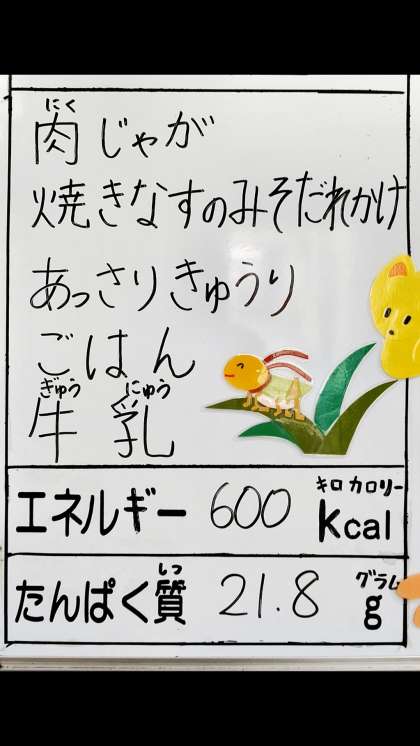 にく
肉じゃが
焼きなすのみそだれかけ
あっさりきゅうり
ごはん
ぎゅう にゅう
牛乳
キロカロリー
エネルギー 600 Kcal
しつ グラム
たんぱく質 21.8 g